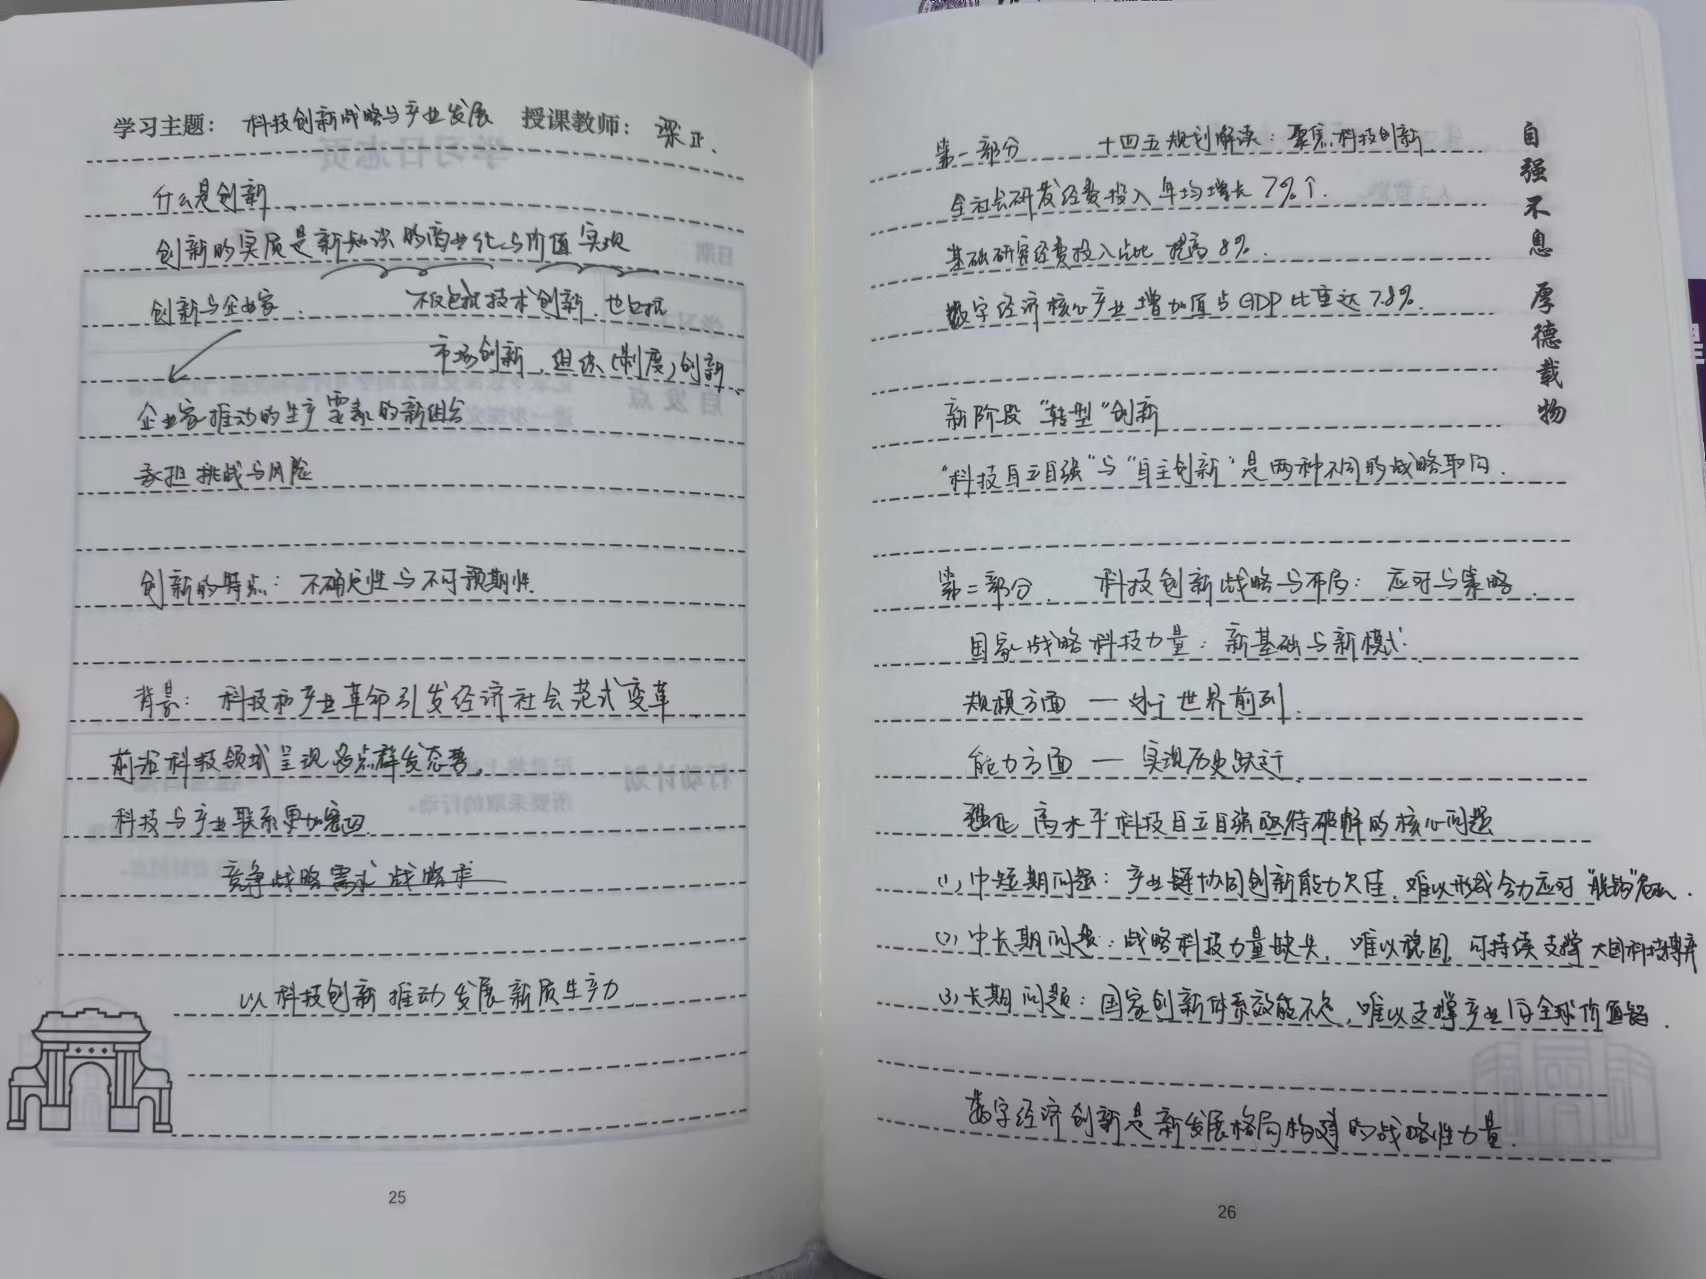 学习主题： 科技创新战略与产业发展 授课教师： 梁正、
什么是创新
创新的实质是新知识的商业化与价值实现
创新与企业家 不仅包括技术创新，也包括
市场创新，组织（制度）创新、
企业家推动的生产要素的新组合
承担挑战与风险
创新的特点：不确定性与不可预期性
背景：科技和产业革命引发经济社会范式变革
前沿科技领域呈现多点群发态势，
科技与产业联系更加密切
竞争战略需求 战略求
以科技创新推动发展新质生产力
25
第一部分 十四五规划解读：聚焦科技创新
全社会研发经费投入年均增长7%↑.
基础研究经费投入占比 提高8%.
数字经济核心产业增加值占GDP比重达7.8%.
新阶段“转型”创新
“科技自立自强”与“自主创新”是两种不同的战略取向.
第二部分. 科技创新战略与布局：应对与策略.
国家战略科技力量：新基础与新模式.
规模方面 — 处于世界前列.
能力方面 — 实现历史跃迁.
强化高水平科技自立自强亟待破解的核心问题
(1)中短期问题：产业链协同创新能力欠佳，难以形成合力应对“脱钩”危机.
(2)中长期问题：战略科技力量缺失，难以稳固，可持续支撑大国科技博弈
(3)长期问题：国家创新体系效能不足，难以支撑产业向全球价值链.
数字经济创新是新发展格局构建的战略性力量.
26
自强不息 厚德载物